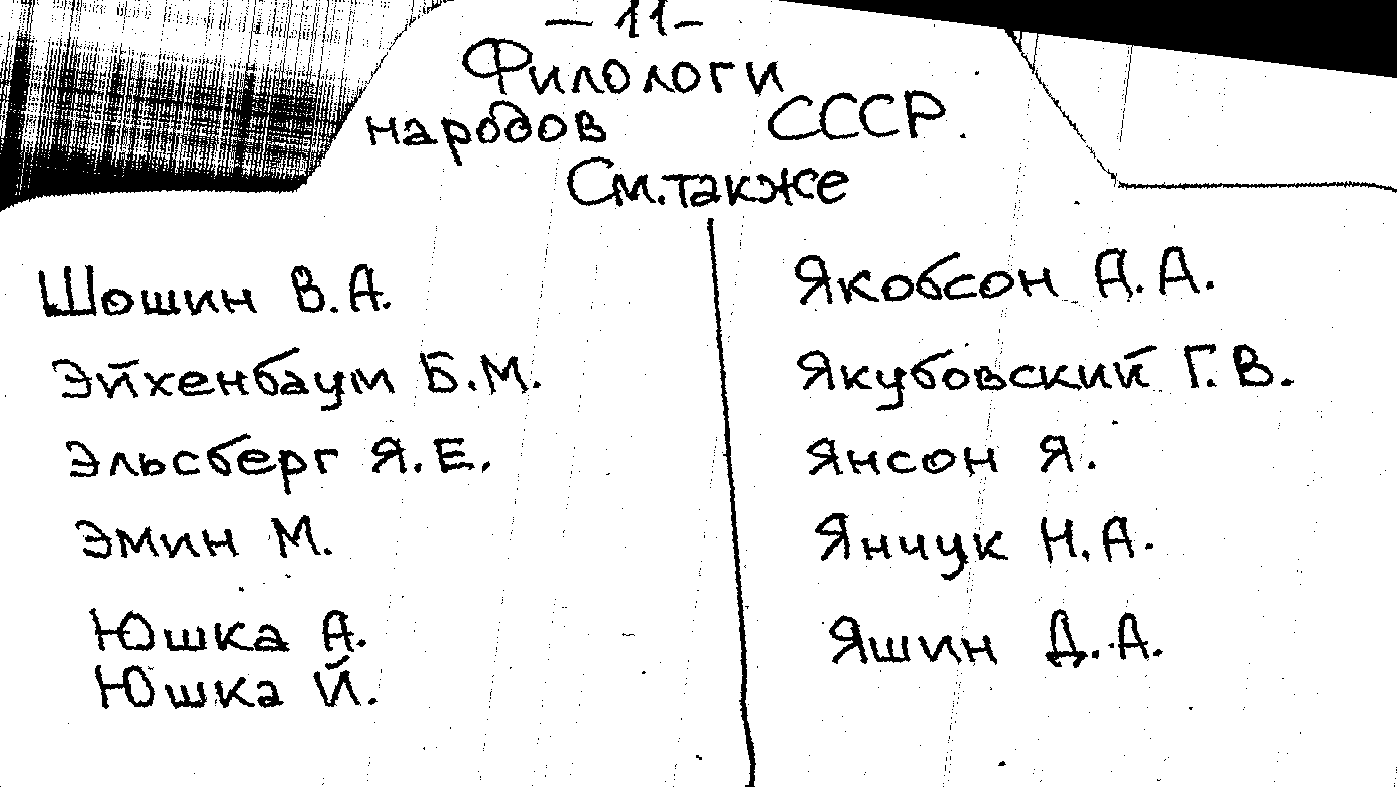 — 11 —
Филологи
народов СССР.
См. также
Шошин В.А.
Эйхенбаум Б.М.
Эльсберг Я.Е.
Эмин М.
Юшка А.
Юшка Й.
Якобсон А.А.
Якубовский Г.В.
Янсон Я.
Янчук Н.А.
Яшин Д.А.